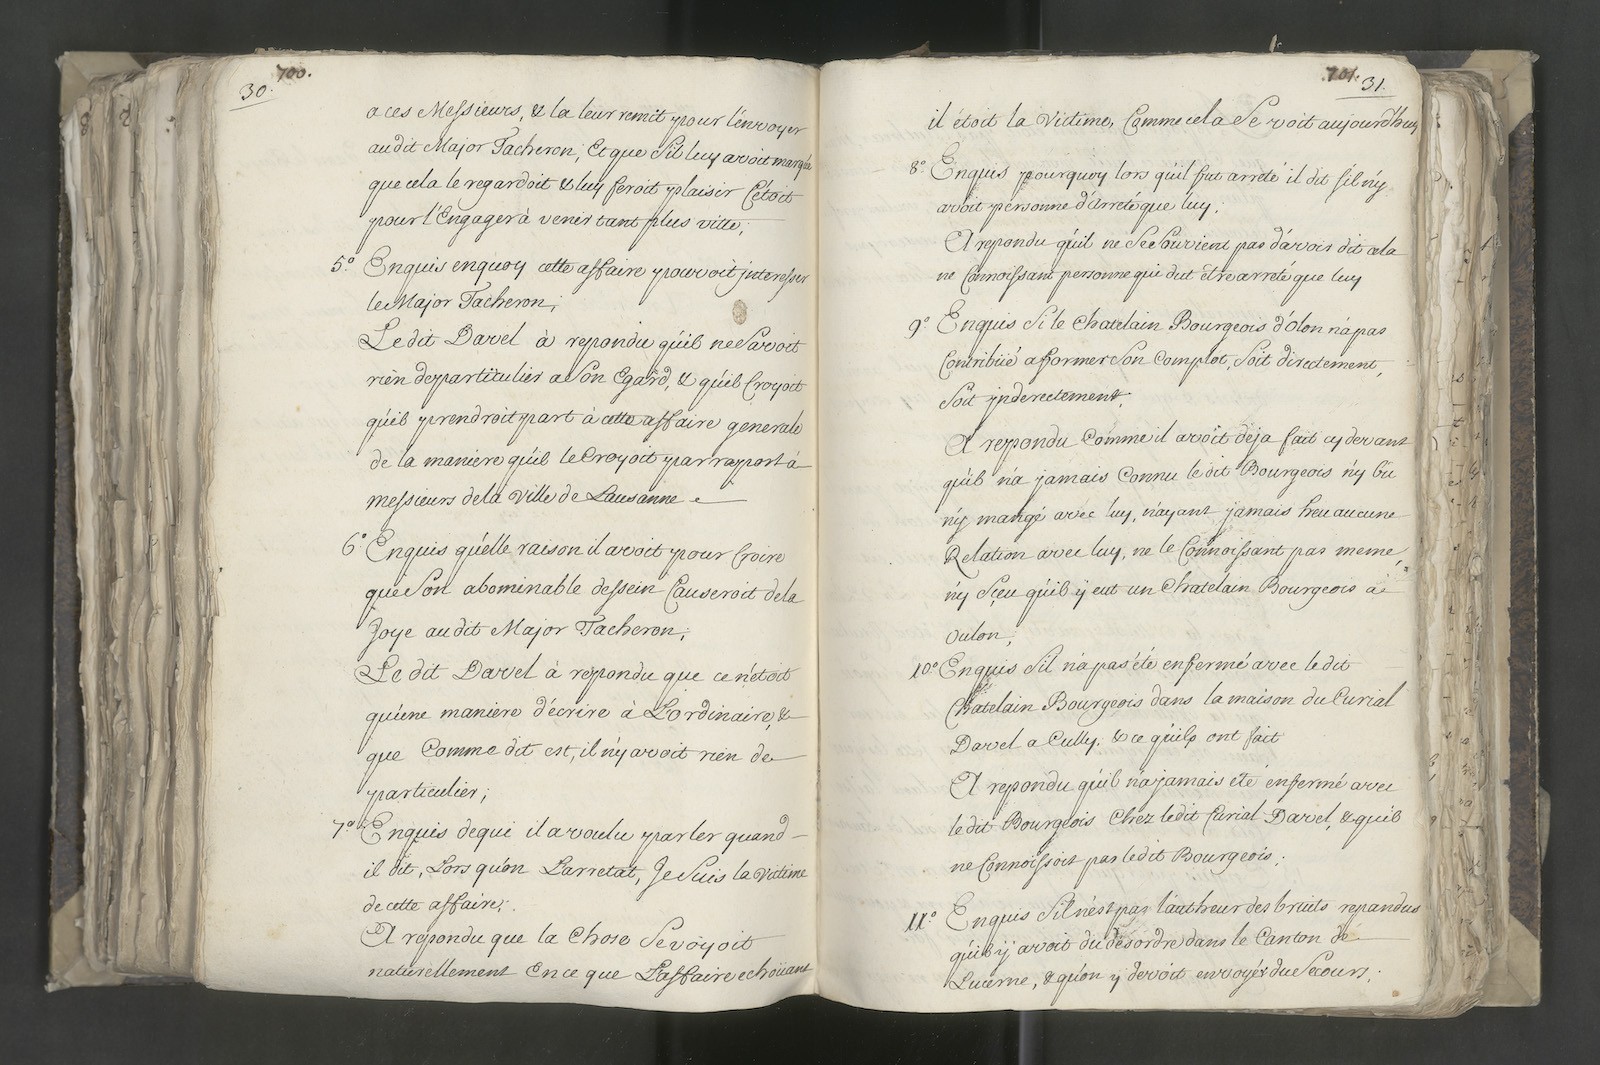 700.
30.
a ces Messieurs, & la leur remit pour l'envoyer
audit Major Tacheron, Et que S'il luy avoit marqué
que cela le regardoit & luy feroit plaisir C'étoit
pour l'Engager à venir tant plus vitte;
5.° Enquis enquoy cette affaire pouvoit jnteresser
le Major Tacheron;
Le dit Davel à repondu qu'il ne Savoit
rien departiculier a Son Egard, & qu'il Croyoit
qu'il prendroit part à cette affaire generale
de la maniere qu'il le Croyoit par rapport à
messieurs dela Ville de Lausanne
6.° Enquis qu'elle raison il avoit pour Croire
que Son abominable dessein Causeroit dela
Joye audit Major Tacheron;
Le dit Davel à repondu que ce n'étoit
qu'une maniere d'écrire à L'ordinaire, &
que Comme dit est, il n'y avoit rien de
particulier;
7.° Enquis dequi il a voulu parler quand
il dit, Lors qu'on L'arretat, Je Suis la Victime
de cette affaire;
A repondu que la Chose Se voyoit
naturellement Ence que L'affaire echoüant
701.
31.
il étoit la Victime, Comme cela Se voit aujourd'huy
8.° Enquis pourquoy lors qu'il fut arreté il dit s'il n'y
avoit personne d'arreté que luy;
A repondu qu'il ne Se Souvient pas d'avoir dit cela
ne Connoissant personne qui dut être arreté que luy
9.° Enquis Si le Chatelain Bourgeois d'Olon n'a pas
Contribüé a former Son Complot, Soit directement,
Soit jnderectement,
A repondu Comme il avoit deja fait cy devant
qu'il n'a jamais Connu le dit Bourgeois n'y bû
n'y mangé avec luy, n'ayant jamais heu aucune
Relation avec luy, ne le Connoissant pas meme,
n'y Sçeu qu'il y eut un Chatelain Bourgeois à
Oulon,
10.° Enquis S'il n'a pas été enfermé avec le dit
Chatelain Bourgeois dans la maison du Curial
Davel a Cully, & ce qu'ils ont fait
A repondu qu'il n'a jamais été enfermé avec
le dit Bourgeois Chez ledit Curial Davel, & qu'il
ne Connoissoit pas le dit Bourgeois;
11.° Enquis S'il n'est pas l'autheur des bruits repandus
qu'il y avoit du désordre dans le Canton de
Lucerne, & qu'on y devoit envoyér du Secours;